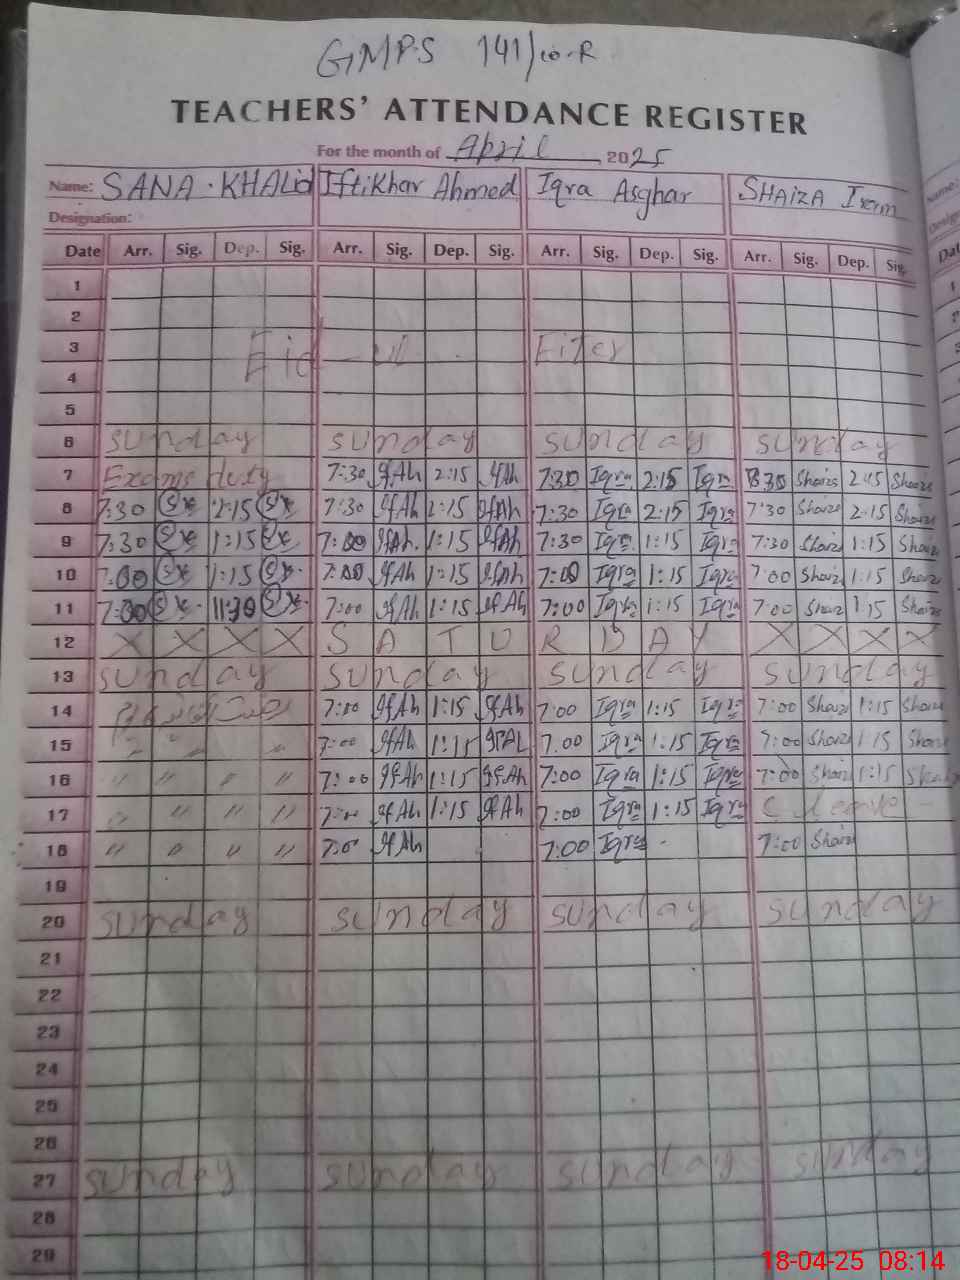 GMPS 141/10-R
TEACHERS' ATTENDANCE REGISTER
For the month of April 2025
Name: SANA KHALID Iftikhar Ahmed Iqra Asghar SHAIZA Irem
Designation:
Date Arr. Sig. Dep. Sig. Arr. Sig. Dep. Sig. Arr. Sig. Dep. Sig. Arr. Sig. Dep. Sig.
1
2
3 Eid-ul Fiter
4
5
6 sunday sunday sunday sunday
7 Exams duty 7:30 IfAh 2:15 IfAh 7:30 Iqra 2:15 Iqra 8:30 Shaiza 2:15 Shaiza
8 7:30 2:15 7:30 IfAh 2:15 IfAh 7:30 Iqra 2:15 Iqra 7:30 Shaiza 2:15 Shaiza
9 7:30 1:15 7:00 IfAh 1:15 IfAh 7:30 Iqra 1:15 Iqra 7:30 Shaiza 1:15 Shaiza
10 7:00 1:15 7:00 IfAh 1:15 IfAh 7:00 Iqra 1:15 Iqra 7:00 Shaiza 1:15 Shaiza
11 7:00 11:30 7:00 IfAh 1:15 IfAh 7:00 Iqra 1:15 Iqra 7:00 Shaiza 1:15 Shaiza
12 X X X X S A T U R D A Y X X X X
13 sunday sunday sunday sunday
14 7:00 IfAh 1:15 IfAh 7:00 Iqra 1:15 Iqra 7:00 Shaiza 1:15 Shaiza
15 " " " 7:00 IfAh 1:15 IfAh 7:00 Iqra 1:15 Iqra 7:00 Shaiza 1:15 Shaiza
16 " " " " 7:00 IfAh 1:15 IfAh 7:00 Iqra 1:15 Iqra 7:00 Shaiza 1:15 Shaiza
17 " " " " 7:00 IfAh 1:15 IfAh 7:00 Iqra 1:15 Iqra C Leave
18 " " " " 7:00 IfAh 7:00 Iqra 7:00 Shaiza
19
20 sunday sunday sunday sunday
21
22
23
24
25
26
27 sunday sunday sunday sunday
28
29
18-04-25 08:14